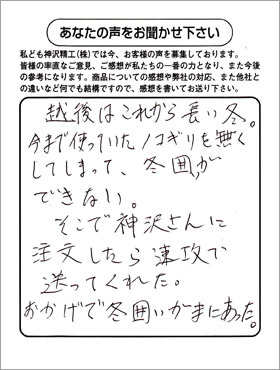 あなたの声をお聞かせ下さい
私ども神沢精工(株)では今、お客様の声を募集しております。
皆様の率直なご意見、ご感想が私たちの一番の力となり、また今後
の参考になります。商品についての感想や弊社の対応、また他社と
の違いなど何でも結構ですので、感想を書いてお送り下さい。
越後はこれから長い冬。
今まで使っていたノコギリを無く
してしまって、冬囲が
できない。
そこで神沢さんに
注文したら速攻で
送ってくれた。
おかげで冬囲いがまにあった。